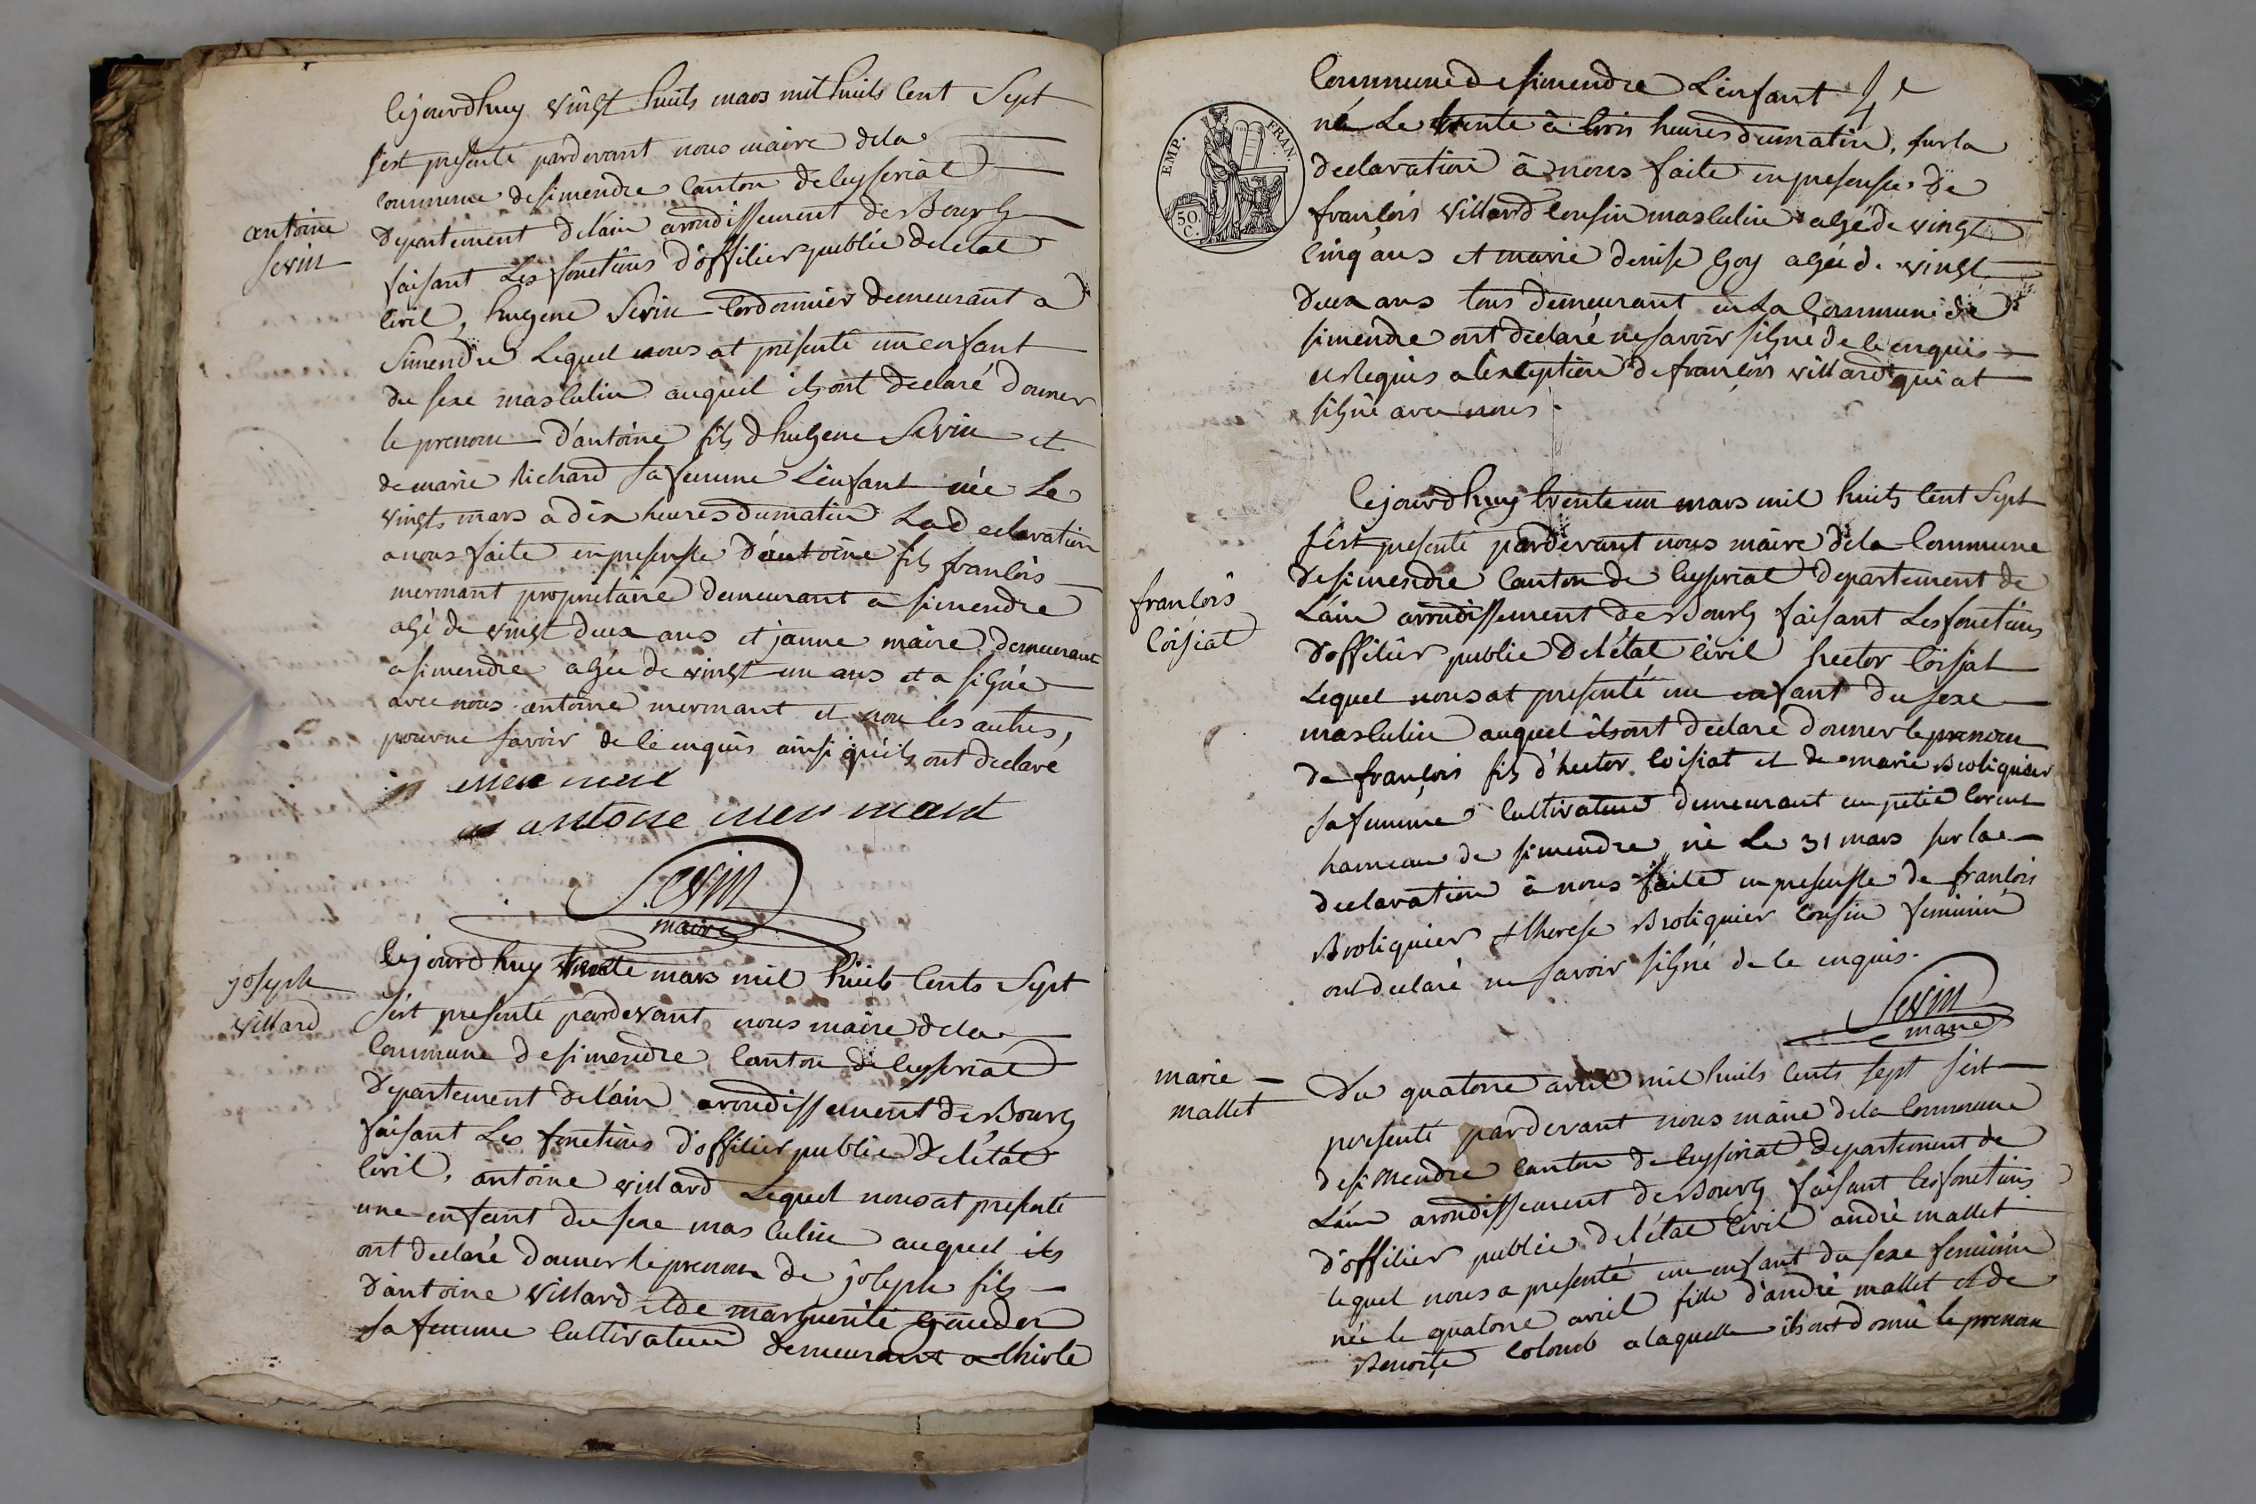 antoine
sevin
Cejourdhuy vingt huits mars mil huits Cent Sept
s'est presenté pardevant nous maire dela
commune desimendre Canton de Ceyseriat
Departement delain arondissement de Bourg
faisant Les fonctions d'officier publie deletat
Civil, hugene Sevin Cordonnier demeurant a
Simendre Lequel nous at presenté un enfant
du sexe masculin auquel ils ont declaré donner
le prenom d'antoine fils d'hugene Sevin et
de marie Richard sa femme L'enfant née Le
vingts mars a dix heures dumatin La declaration
a nous faite en presensse d'antoine fils francois
mermant propriétaire demeurant a simendre
agé de vingt deux ans et janne maire demeurant
a simendre agée de vingt un ans et a signé
avec nous antoine mermant et non les autres,
pourne savoir de ce enquis ainsi quils ont declaré
antoine mermant
Sevin
maire
joseph
villard
Cejourdhuy trente mars mil huits Cents Sept
s'est presenté pardevant nous maire dela
Commune desimendre Canton de Ceyseriat
Departement delain arondissement de Bourg
faisant Les fonctions d'officier publie deletat
Civil, antoine villard Lequel nous at presenté
une enfant du sexe masculin auquel ils
ont declaré donner le prenom de joseph fils
d'antoine villard et de marguerite Gauder
sa femme Cultivateur demeurant a
EMP. FRAN.
50 C.
Commune desimendre L'enfant
né Le trente à trois heures dumatin, sur la
declaration à nous faite en presensse de
francois villard Cousin masculin agé de vingt
Cinq ans et marie denise Goy agée de vingt
deux ans tous demeurant en La Commune de
simendre ont declaré ne savoir signé de ce enquis
et Requis a l'exception de francois villard qui at
signé avec nous.
francois
Coisiat
Cejourdhuy trente un mars mil huits Cent Sept
s'est presenté pardevant nous maire dela Commune
desimendre Canton de Ceyseriat departement de
Lain arondissement de Bourg faisant Les fonctions
d'officier publie deletat Civil hector Coisiat
Lequel nous at presenté un enfant du sexe
masculin auquel ils ont declaré donner le prenom
de francois fils d'hector Coisiat et de marie Brotiquier
sa femme Cultivateur demeurant en petit Corent
hameau de simendre né Le 31 mars sur la
declaration à nous faite en presensse de francois
Brotiquier et therese Brotiquier Cousin feminin
ont declaré ne savoir signé de ce enquis.
Sevin
maire
marie
mallet
Du quatorze avril mil huits Cents sept s'est
presenté pardevant nous maire dela Commune
desimendre Canton de Ceyseriat departement de
Lain arondissement de Bourg faisant les fonctions
d'officier publie deletat Civil andré mallet
lequel nous a presenté un enfant du sexe feminin
née le quatorze avril fille d'andré mallet et de
Benoite Colomb a laquelle ils ont donné le prenom